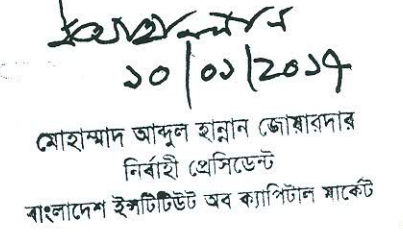 ১০/০১/২০১৭
মোহাম্মাদ আব্দুল হান্নান জোয়ারদার
নির্বাহী প্রেসিডেন্ট
বাংলাদেশ ইন্সটিটিউট অব ক্যাপিটাল মার্কেট